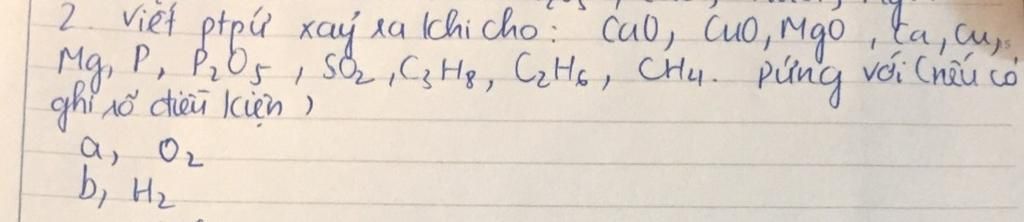 2. Viết ptpứ xảy ra khi cho: CaO, CuO, MgO, Ca, Cu,
Mg, P, P₂O₅, SO₂, C₃H₈, C₂H₆, CH₄. pứng với (nếu có
ghi rõ điều kiện)
a, O₂
b, H₂